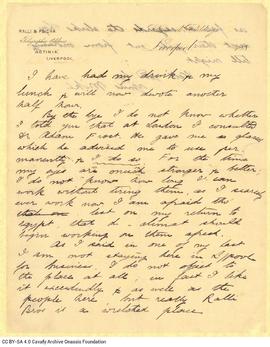 RALLI & PSICHA
Telegraphic Address
ACTINIA
LIVERPOOL
I have had my drink & my
lunch & will now devote another
half hour.
By the bye I do not know whether
I told you that at London I consulted
Dr Adams Frost. He gave me as glasses
which he advised me to use per-
manently & I do so. For the time
my eyes are much stronger & better.
I do not know how long I can
work without tiring them, as I scarcely
ever work now I am afraid
lest on my return to
Egypt that d climat should
begin working on them afresh.
As I said in one of my last
I am not staying here in L'pool
for business. I do not object to
the place at all, in fact I like
it exceedingly & as well as the
people here but really Ralli
Bros is a wretched place
CC BY-SA 4.0 Cavafy Archive Onassis Foundation